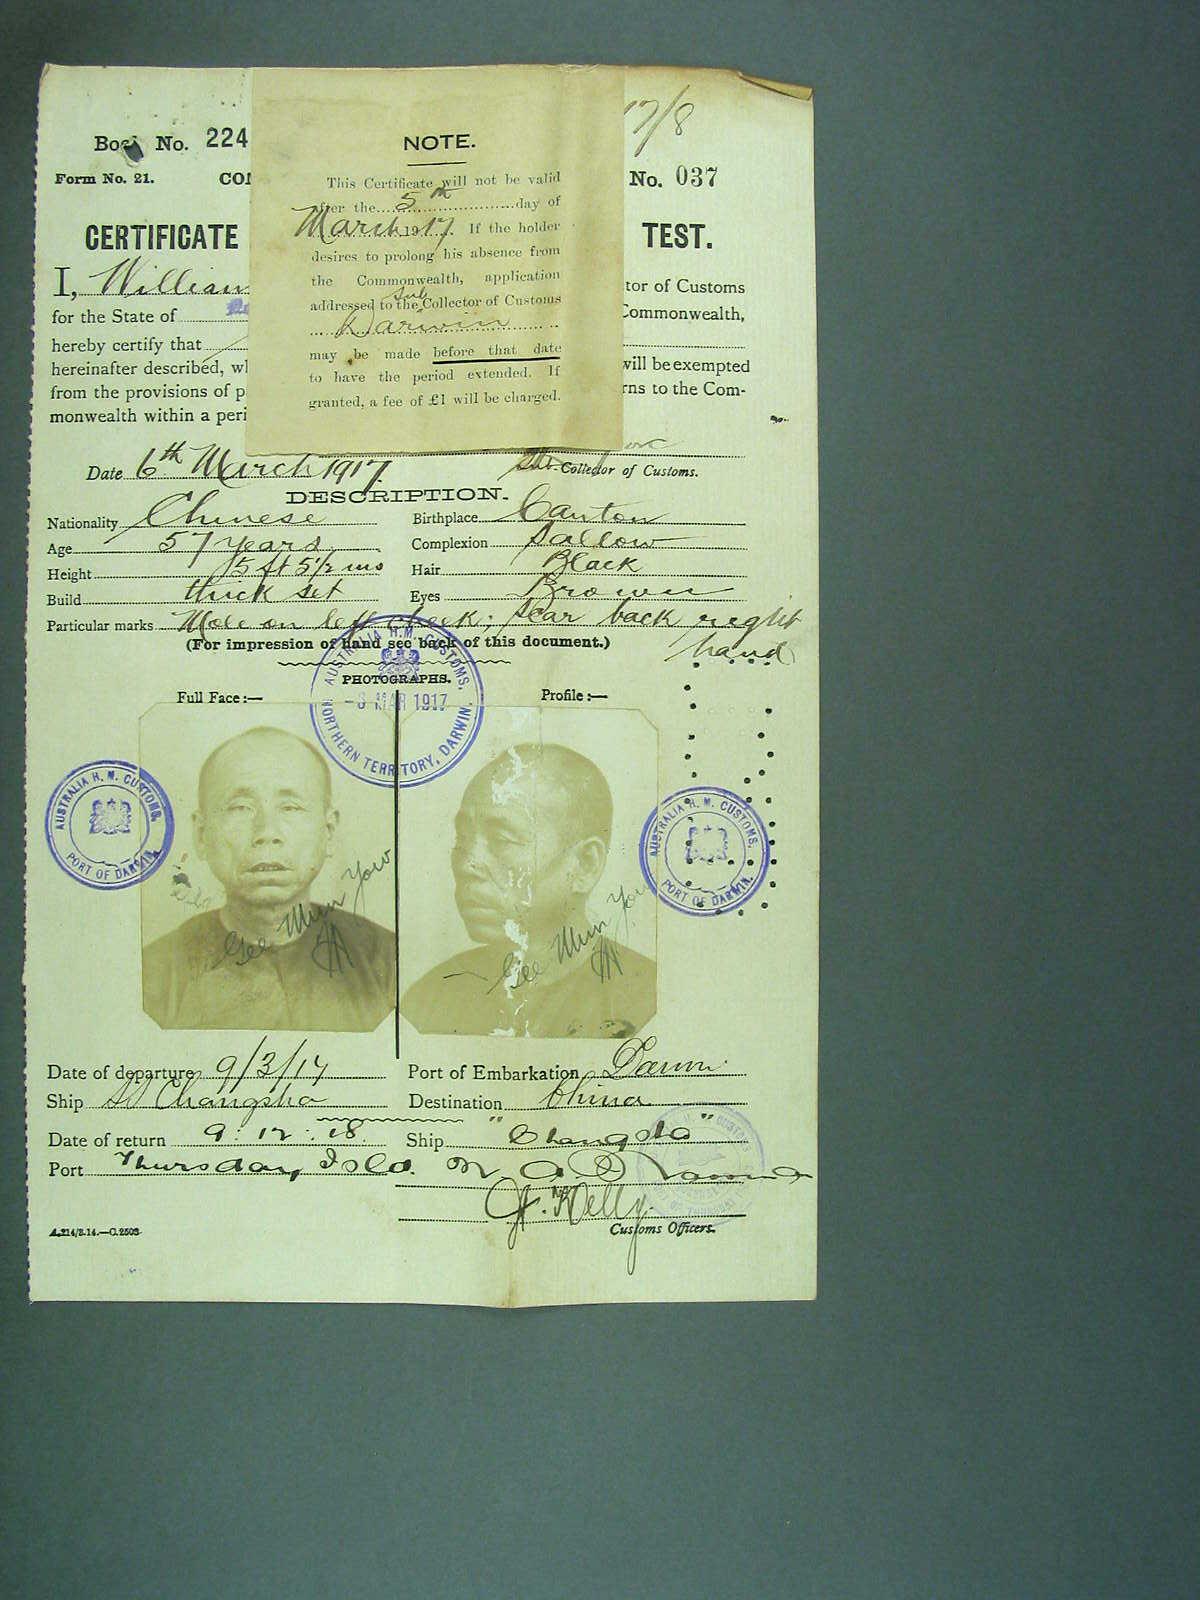 17/8
Book No. 224
No. 037
Form No. 21.
CERTIFICATE
TEST.
NOTE.
This Certificate will not be valid
after the 5th day of
March 1917. If the holder
desires to prolong his absence from
the Commonwealth, application
addressed to the Sub Collector of Customs
Darwin
may be made before that date
to have the period extended. If
granted, a fee of £1 will be charged.
I, William
tor of Customs
for the State of
Commonwealth,
hereby certify that
hereinafter described, wh
will be exempted
from the provisions of p
rns to the Com-
monwealth within a peri
Date 6th March 1917.
Sub Collector of Customs.
DESCRIPTION.
Nationality Chinese
Birthplace Canton
Age 57 years
Complexion Sallow
Height 5 ft 5½ ins
Hair Black
Build thick set
Eyes Brown
Particular marks Mole on left cheek; scar back right
hand
(For impression of hand see back of this document.)
PHOTOGRAPHS.
Full Face:—
Profile:—
AUSTRALIA H.M. CUSTOMS.
MAR 1917
NORTHERN TERRITORY, DARWIN.
AUSTRALIA H. M. CUSTOMS.
PORT OF DARWIN.
AUSTRALIA H. M. CUSTOMS.
PORT OF DARWIN.
Gee Mun Yow
Gee Mun You
Date of departure 9/3/17
Port of Embarkation Darwin
Ship SS Changsha
Destination China
Date of return 9:12:18
Ship "Changsha"
Port Thursday Isld.
Kelly
Customs Officers.
A.214/8.14.—C.2503